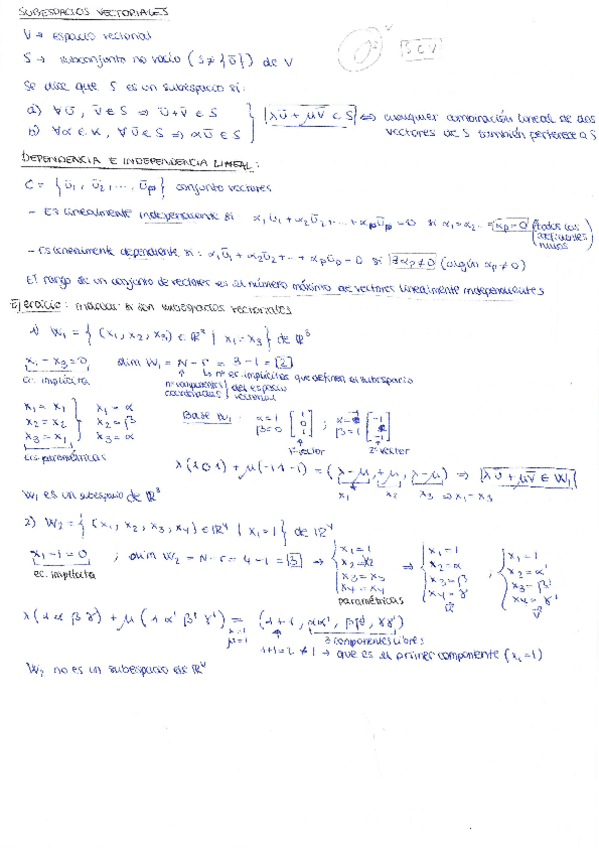 SUBESPACIOS VECTORIALES
V → espacio vectorial
BCV
S → subconjunto no vacío (S ≠ {ū}) de V
Se dice que S es un subespacio si:
a) ∀ū, v̄ ∈ S ⇒ ū+v̄ ∈ S
b) ∀α ∈ K, ∀ū ∈ S ⇒ αū ∈ S
λū + μv̄ ∈ S ⇔ cualquier combinación lineal de dos
vectores de S también pertenece a S
DEPENDENCIA E INDEPENDENCIA LINEAL:
C = {ū₁, ū₂, ... ūp} conjunto vectores
- Es linealmente independiente si α₁ū₁ + α₂ū₂ ... + αpūp = 0 si α₁ = α₂ = αp = 0 (todos los
nulos)
- Es linealmente dependiente si: α₁ū₁ + α₂ū₂ + .. + αpūp = 0 si ∃αp ≠ 0 (algún αp ≠ 0)
El rango de un conjunto de vectores es el número máximo de vectores linealmente independientes
Ejercicio: indicar si son subespacios vectoriales
1) W₁ = {(x₁, x₂, x₃) ∈ ℝ³ | x₁ = x₃} de ℝ³
x₁ - x₃ = 0, dim W₁ = N - r = 3 - 1 = 2
ec. implícita
nº ec. implícitas que definen el subespacio
nº componentes del espacio
coordenadas vectorial
x₁ = x₁ x₁ = α
x₂ = x₂ x₂ = β
x₃ = x₁ x₃ = α
Base W₁: α=1 β=0 [1 0 1]; β=1 [-1 1 -1]
1º vector 2º vector
ecs. paramétricas
λ(1 0 1) + μ(-1 1 -1) = (λ-μ, +μ, λ-μ) ⇒ λū + μv̄ ∈ W₁
x₁ x₂ x₃ ⇔ x₁ = x₃
W₁ es un subespacio de ℝ³
2) W₂ = {(x₁, x₂, x₃, x₄) ∈ ℝ⁴ | x₁ = 1} de ℝ⁴
x₁ - 1 = 0 ; dim W₂ = N - r = 4 - 1 = 3 ⇒ {x₁ = 1 ⇒ {x₁ = 1 ; {x₁ = 1
ec. implícita x₂ = x₂ x₂ = α x₂ = α'
x₃ = x₃ x₃ = β x₃ = β'
x₄ = x₄ x₄ = γ x₄ = γ'
paramétricas ū v̄
λ(1 α β γ) + μ(1 α' β' γ') = (1+1, αα', ββ', γγ')
λ=1
μ=1
3 componentes libres
1+1=2 ≠ 1 → que es el primer componente (x₁=1)
W₂ no es un subespacio de ℝ⁴